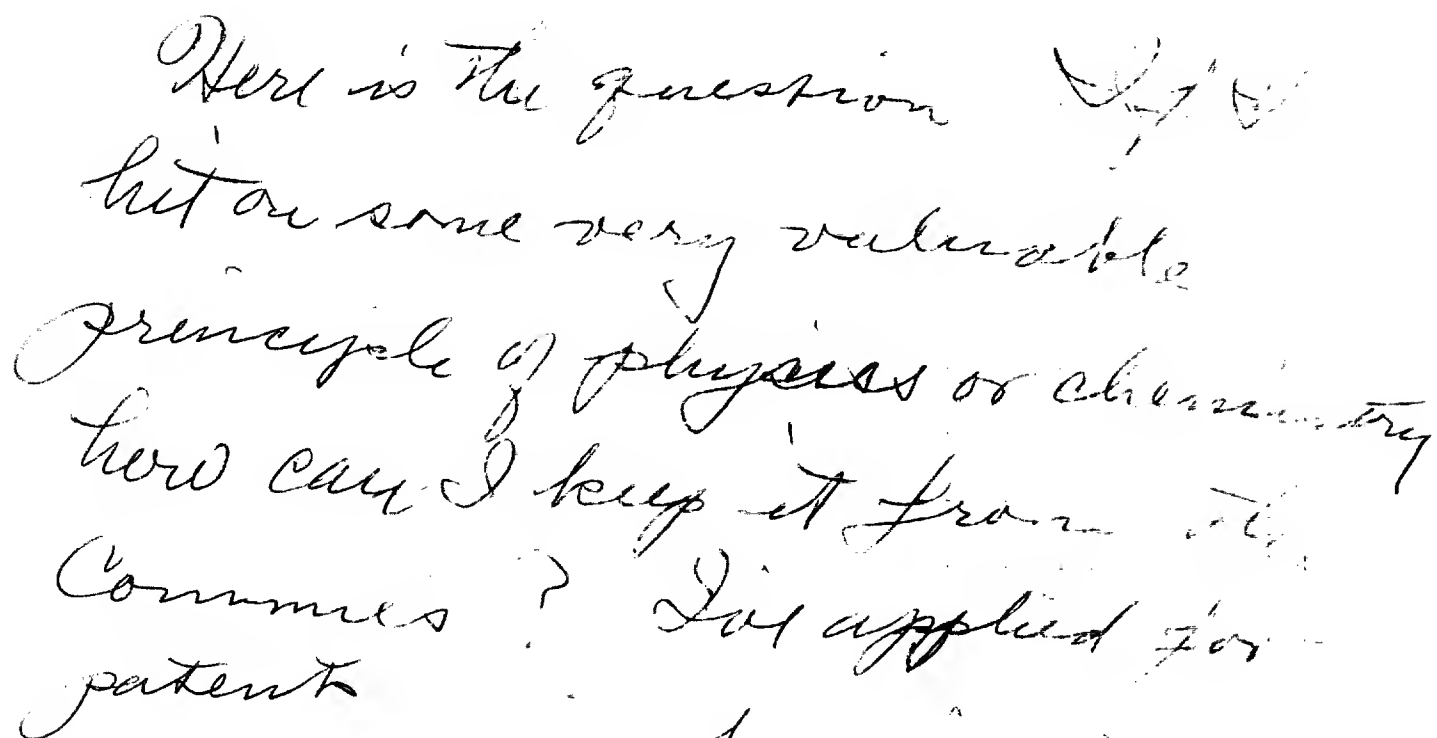 Here is the question If I
hit on some very valuable
principle of physics or chemistry
how can I keep it from the
Commies? I've applied for
patent